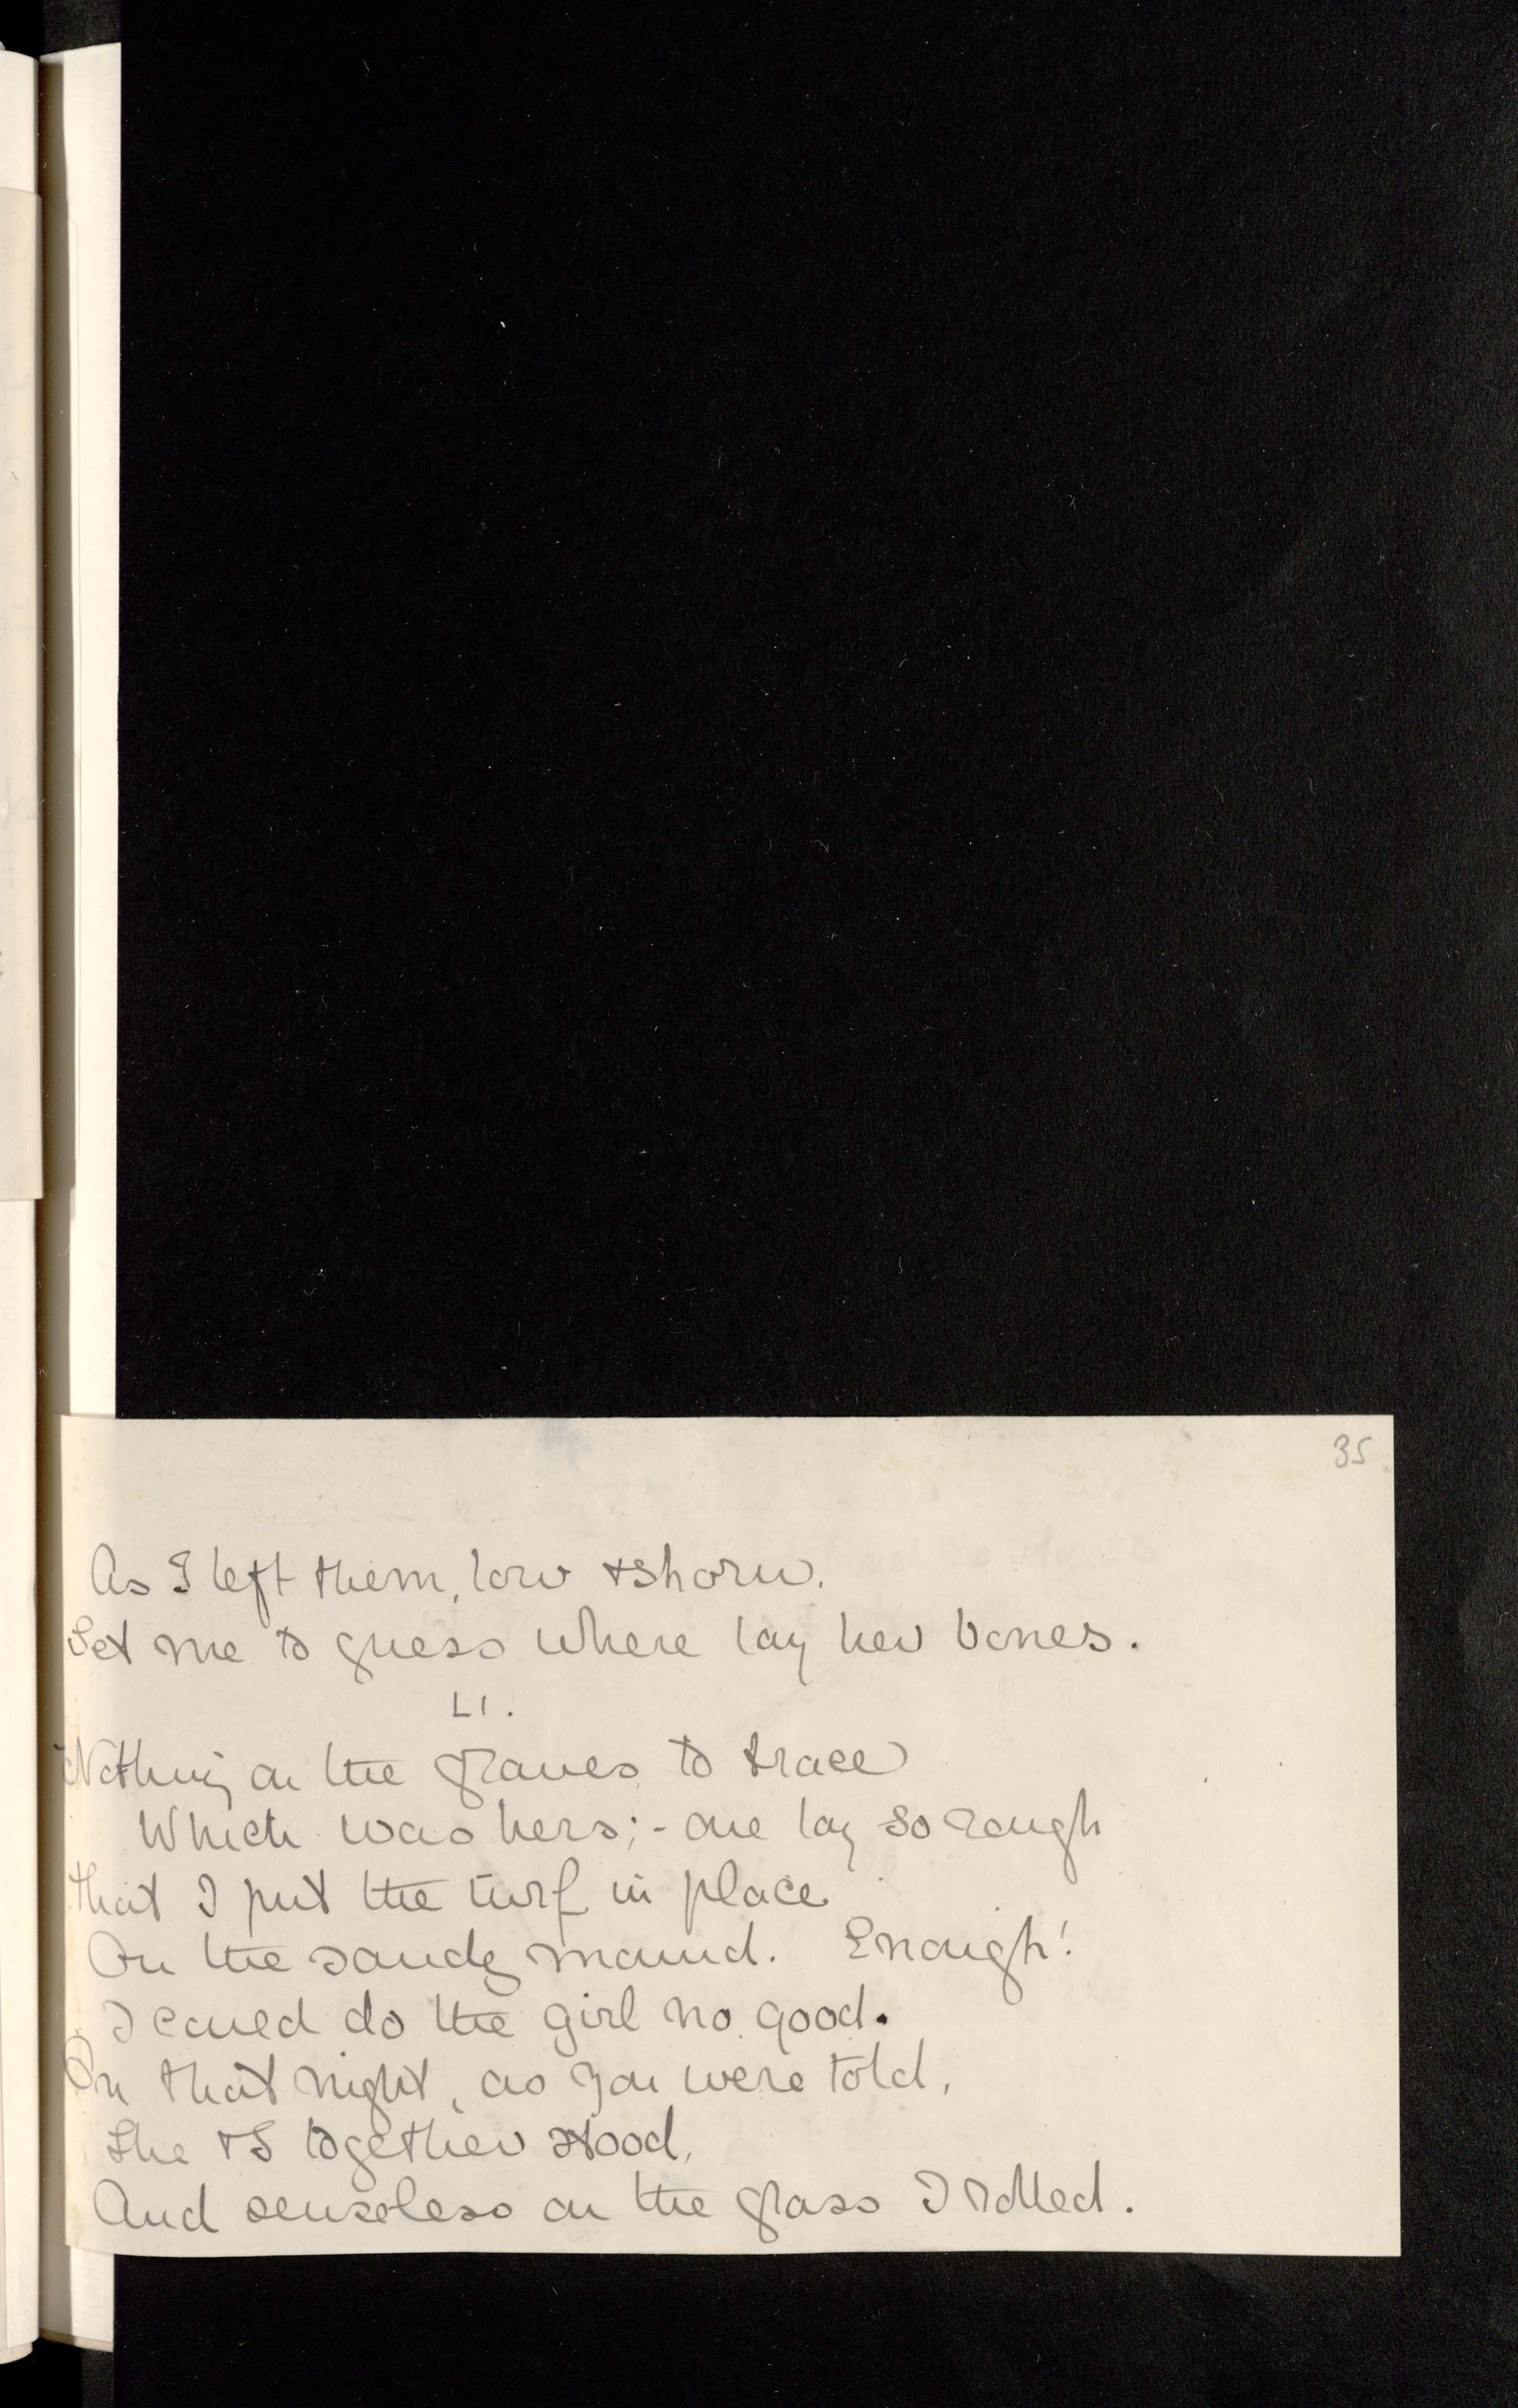 35
As I left them, low & shorn.
Set me to guess where lay her bones.
LI.
Nothing on the graves to trace
Which was hers; - one lay so rough
that I put the turf in place
On the sandy mound. Enough!
I could do the girl no good.
On that night, as you were told,
She & I together stood,
And senseless on the grass I rolled.